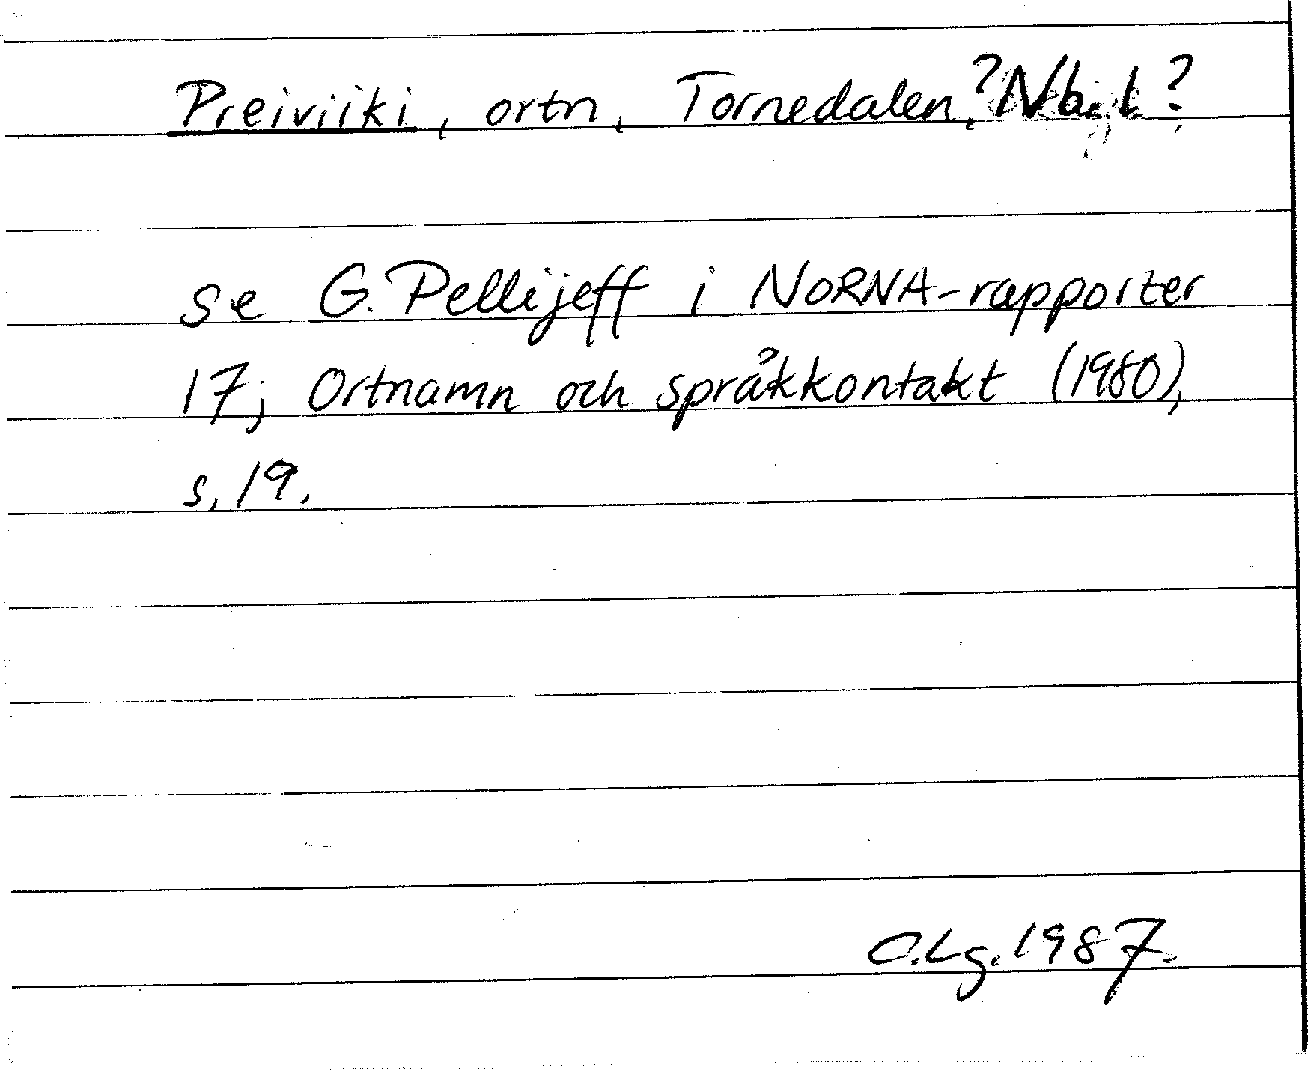 Preiviiki, ortn, Tornedalen,? Nb. l?
se G. Pellijeff i NORNA-rapporter
17; Ortnamn och språkkontakt (1980),
s. 19.
C.Lg. 1987.